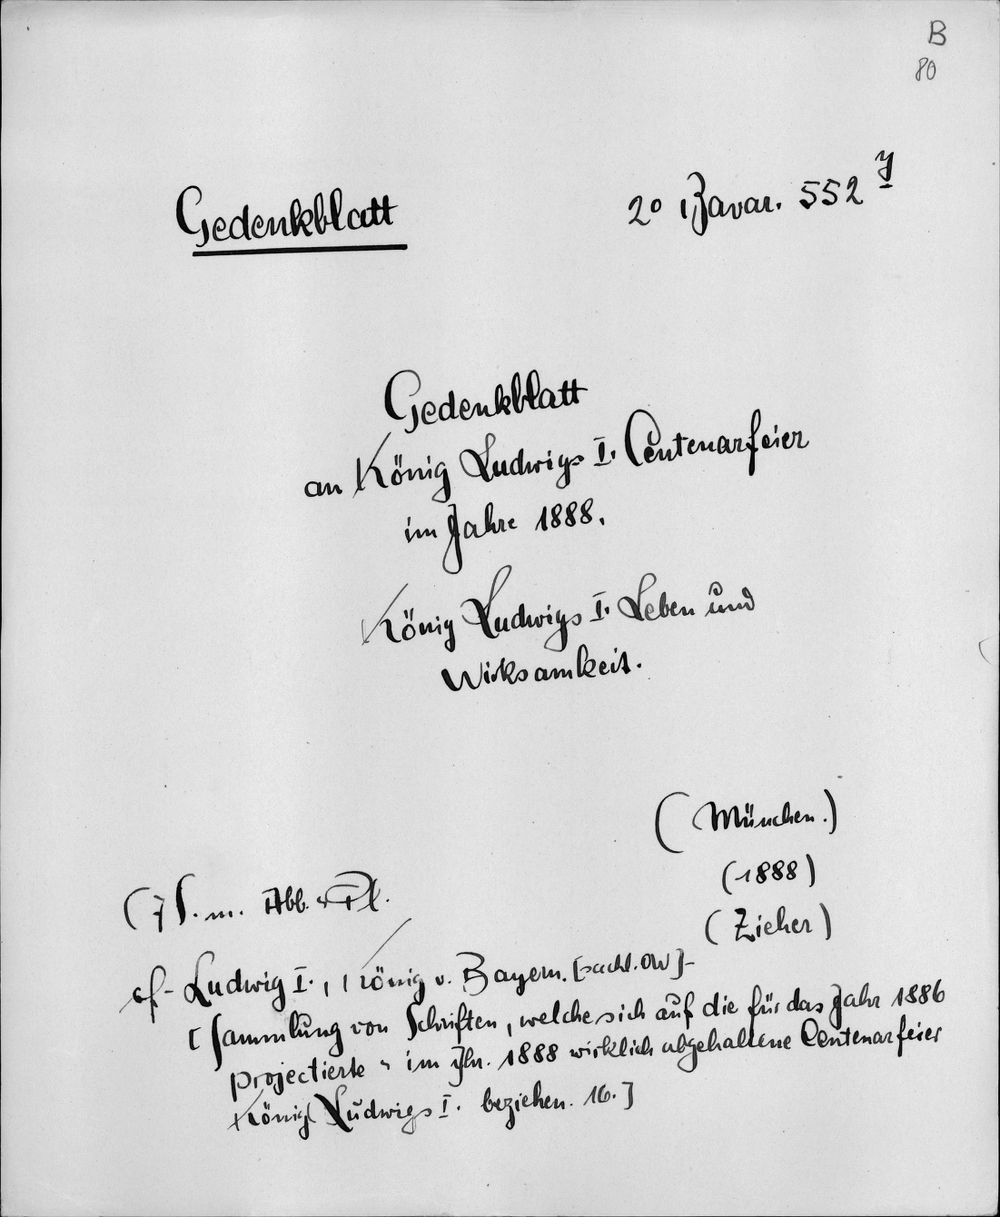 B
80
Gedenkblatt
2° Bavar. 552 y
Gedenkblatt
an König Ludwigs I. Centenarfeier
im Jahre 1888.
König Ludwigs I. Leben und
Wirksamkeit.
(München.)
(1888)
(Zieher)
(7 S. m. Abb. Pl.
cf. Ludwig I., König v. Bayern. [sachl. OW]-
[Sammlung von Schriften, welche sich auf die für das Jahr 1886
projectierte u. im Jhr. 1888 wirklich abgehaltene Centenarfeier
König Ludwigs I. beziehen. 16.]